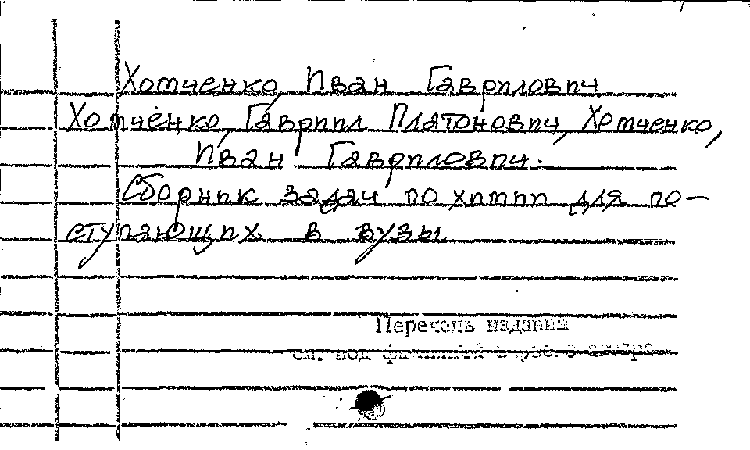 Хомченко, Иван Гаврилович
Хомченко, Гавриил Платонович, Хомченко,
Иван Гаврилович.
Сборник задач по химии для по-
ступающих в вузы
Перечень издания
см. под